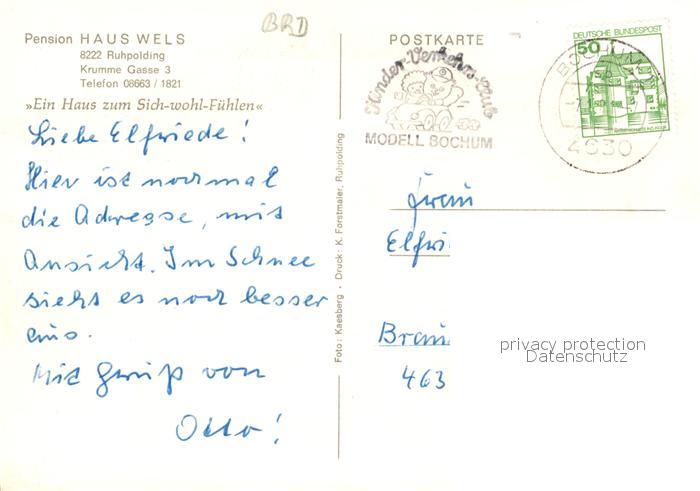 BRD
Pension HAUS WELS
8222 Ruhpolding
Krumme Gasse 3
Telefon 08663 / 1821
»Ein Haus zum Sich-wohl-Fühlen«
Liebe Elfriede!
Hier ist nochmal
die Adresse, mit
Ansicht. Im Schnee
sieht es noch besser
aus.
Mit Gruß von
Otto!
Foto: Kaesberg · Druck: K. Forstmaier, Ruhpolding
POSTKARTE
Kinder-Verkehrs-Club
MODELL BOCHUM
DEUTSCHE BUNDESPOST
50
BOCHUM
4630
Frau
Elfri
Brau
463
privacy protection
Datenschutz